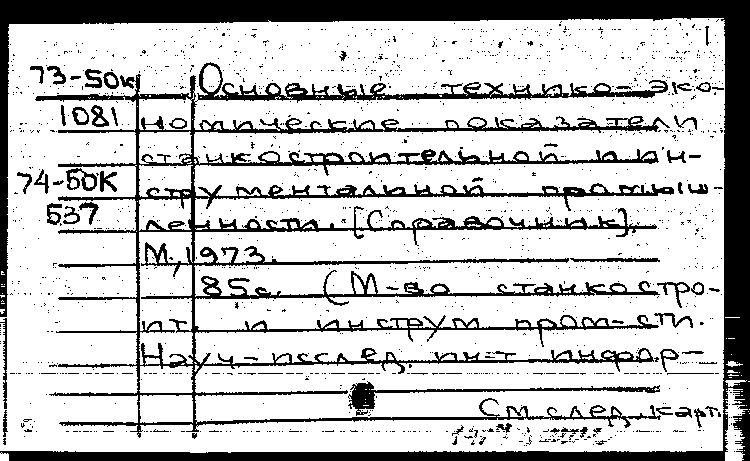 73-50к Основные технико-эко-
1081 номические показатели
станкостроительной и ин-
74-50К струментальной промыш-
537 ленности. [Справочник].
М., 1973.
85с. (М-во станкостро-
ит. и инструм пром-сти.
Науч-исслед. ин-т инфор-
См след. карт.